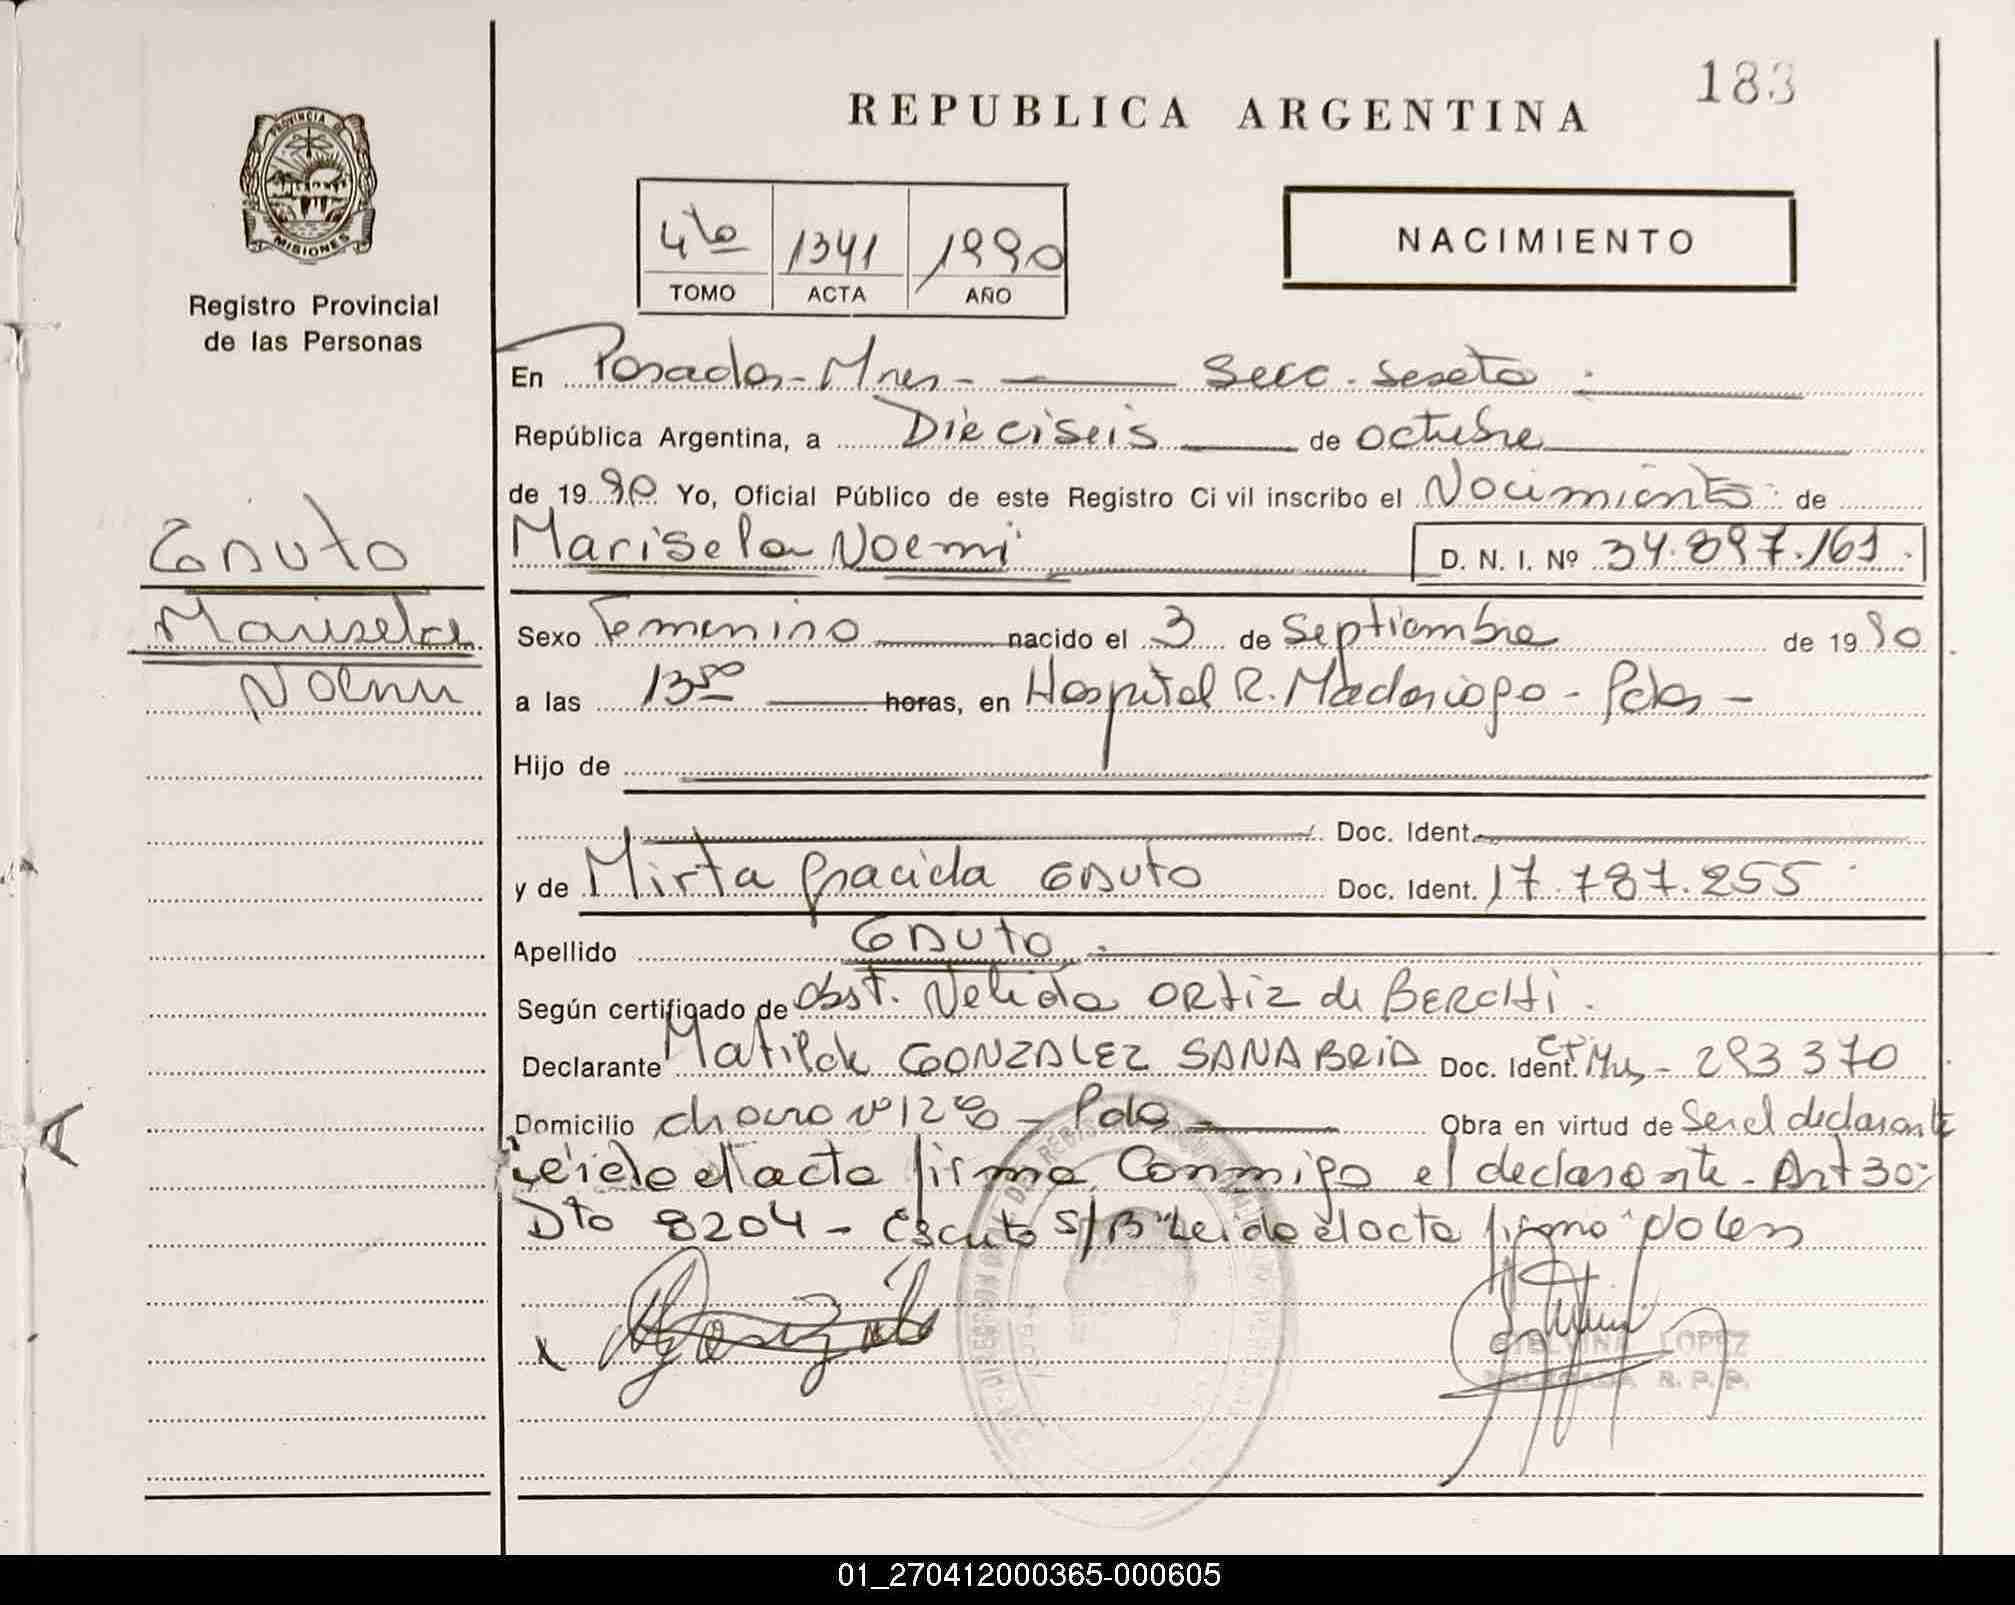 183
REPUBLICA ARGENTINA
PROVINCIA DE
MISIONES
Registro Provincial
de las Personas
4to 1341 1990
TOMO ACTA AÑO
NACIMIENTO
En Posadas - Mnes - Secc. Sexta
República Argentina, a Dieciseis de octubre
de 1990 Yo, Oficial Público de este Registro Ci vil inscribo el Nacimiento de
Marisela Noemi D. N. I. Nº 34.897.161
Gauto
Marisela
Noemi
Sexo Femenino nacido el 3 de Septiembre de 1990
a las 13 50 horas, en Hospital R. Madariaga - Pdas -
Hijo de
Doc. Ident.
y de Mirta Gracida GAUTO Doc. Ident. 17.787.255
Apellido GAUTO
Según certificado de Obst. Nelida ORTIZ de BERCHI.
Declarante Matilde GONZALEZ SANABRIA Doc. Ident. Mns - 293370
Domicilio chacra nº 128 - Pdas - Obra en virtud de Ser el declarante
Leido el acta firma Conmigo el declarante - Art 30:
Dto 8204 - Escrito S/B "Leido el acta firma" Valen
x
LOPEZ
R. P. P.
01_270412000365-000605